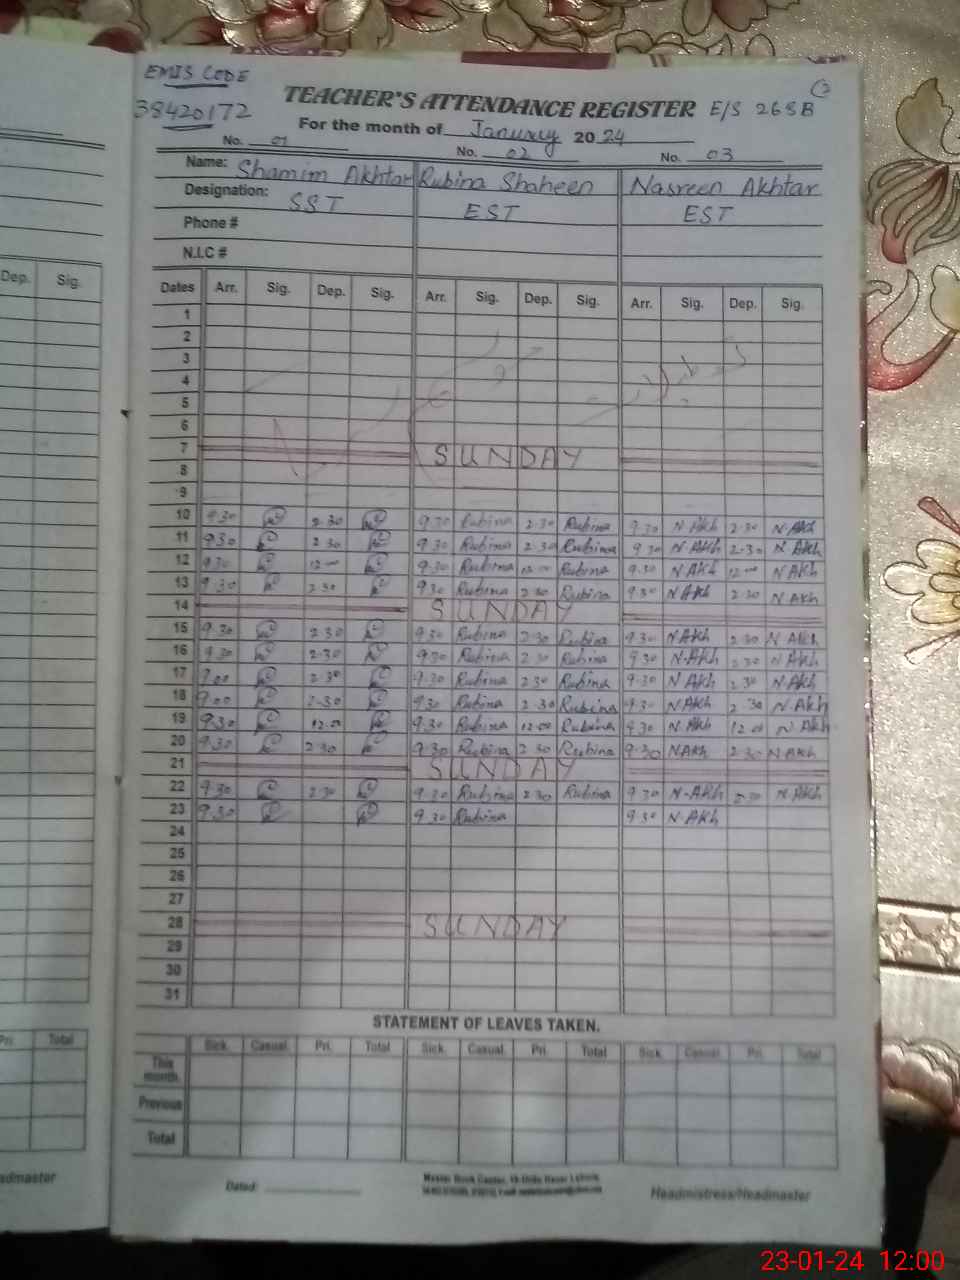 EMIS CODE
38420172
TEACHER'S ATTENDANCE REGISTER E/S 26SB
For the month of January 2024
No. 01 No. 02 No. 03
Name: Shamim Akhtar Rubina Shaheen Nasreen Akhtar
Designation: SST EST EST
Phone #
N.I.C #
Dep. Sig.
Dates Arr. Sig. Dep. Sig. Arr. Sig. Dep. Sig. Arr. Sig. Dep. Sig.
1
2
3
4
5
6
7 SUNDAY
8
9
10 9.30 2.30 9.30 Rubina 2.30 Rubina 9.30 N.Akh 2.30 N.Akh
11 9.30 2.30 9.30 Rubina 2.30 Rubina 9.30 N.Akh 2.30 N.Akh
12 9.30 12.00 9.30 Rubina 12.00 Rubina 9.30 N.Akh 12.00 N.Akh
13 9.30 2.30 9.30 Rubina 2.30 Rubina 9.30 N.Akh 2.30 N.Akh
14 SUNDAY
15 9.30 2.30 9.30 Rubina 2.30 Rubina 9.30 N.Akh 2.30 N.Akh
16 9.30 2.30 9.30 Rubina 2.30 Rubina 9.30 N.Akh 2.30 N.Akh
17 9.00 2.30 9.30 Rubina 2.30 Rubina 9.30 N.Akh 2.30 N.Akh
18 9.00 2.30 9.30 Rubina 2.30 Rubina 9.30 N.Akh 2.30 N.Akh
19 9.30 12.00 9.30 Rubina 12.00 Rubina 9.30 N.Akh 12.00 N.Akh
20 9.30 2.30 9.30 Rubina 2.30 Rubina 9.30 N.Akh 2.30 N.Akh
21 SUNDAY
22 9.30 2.30 9.30 Rubina 2.30 Rubina 9.30 N.Akh 2.30 N.Akh
23 9.30 9.30 Rubina 9.30 N.Akh
24
25
26
27
28 SUNDAY
29
30
31
STATEMENT OF LEAVES TAKEN.
Pri. Total
Sick. Casual. Pri. Total Sick. Casual. Pri. Total Sick. Casual. Pri. Total
This month.
Previous
Total
Dated:
Headmistress/Headmaster
23-01-24 12:00